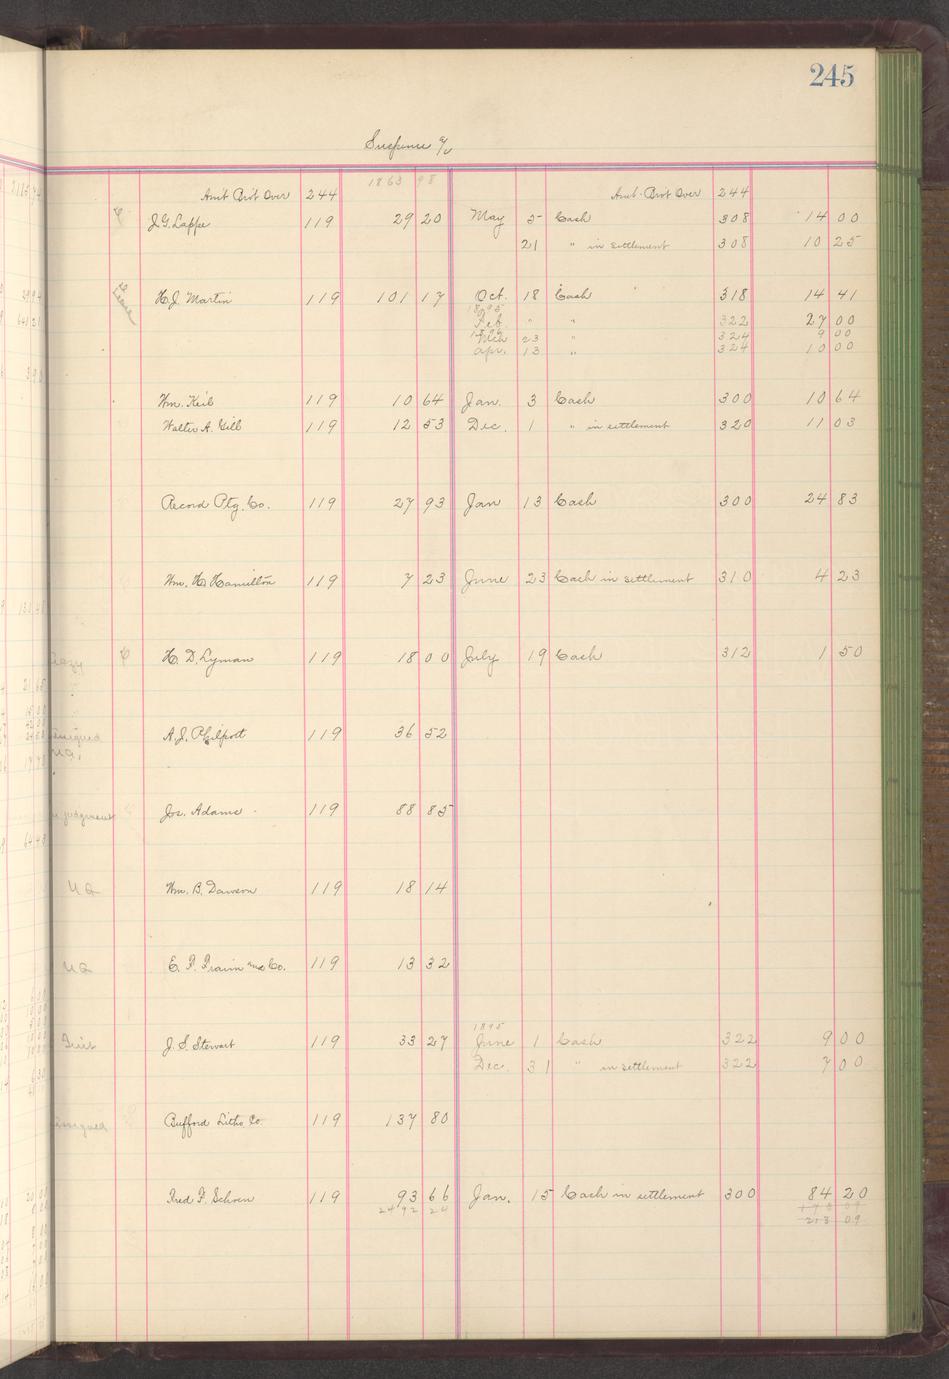 245
Suspense a/c
1863 98
Amt Brot Over 244 Amt. Brot Over 244
J. G. Lappe 119 29 20 May 5 Cash 308 14 00
21 " in settlement 308 10 25
H. J. Martin 119 101 17 Oct. 18 Cash 318 14 41
1895
Feb. " " 322 27 00
1896
Mch 23 " 324 9 00
Apr. 13 " 324 10 00
Wm. Keib 119 10 64 Jan. 3 Cash 300 10 64
Walter A. Gill 119 12 53 Dec. 1 " in settlement 320 11 03
Record Ptg. Co. 119 27 93 Jan 13 Cash 300 24 83
Wm. H. Hamilton 119 7 23 June 23 Cash in settlement 310 4 23
H. D. Lyman 119 18 00 July 19 Cash 312 1 50
A. J. Philpott 119 36 52
judgment Jos. Adams 119 88 85
Wm. B. Dawson 119 18 14
E. P. and Co. 119 13 32
1895
J. S. Stewart 119 33 27 June 1 Cash 322 9 00
Dec. 31 " in settlement 322 7 00
Bufford Litho Co. 119 137 80
Fred F. Schoen 119 93 66 Jan. 15 Cash in settlement 300 84 20
2492 24
213 09